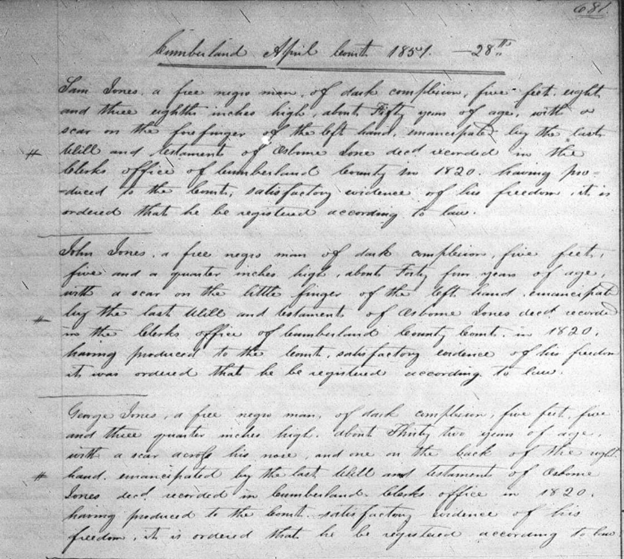 681
Cumberland April Court 1851. — 28th
Sam Jones, a free negro man, of dark complexion, five feet eight
and three eighths inches high, about Fifty years of age, with a
scar on the forefinger of the left hand, emancipated by the last
# Will and testament of Osborne Jone decd recorded in the
Clerks office of Cumberland County in 1820. having pro-
duced to the Court, satisfactory evidence of his freedom, it is
ordered that he be registered according to law.
John Jones, a free negro man of dark complexion, five feet,
five and a quarter inches high, about Forty five years of age,
with a scar on the little finger of the left hand, emancipated
by the last Will and testament of Osborne Jones decd recorded
# in the Clerks office of Cumberland County Court, in 1820.
having produced to the Court, satisfactory evidence of his freedom
it was ordered that he be registered according to law.
George Jones, a free negro man, of dark complexion, five feet, five
and three quarter inches high. about Thirty two years of age,
with a scar across his nose, and one on the back of the right
# hand. emancipated by the last Will and testament of Osborne
Jones decd. recorded in Cumberland Clerks office in 1820.
having produced to the Court satisfactory evidence of his
freedom, it is ordered that he be registered according to law